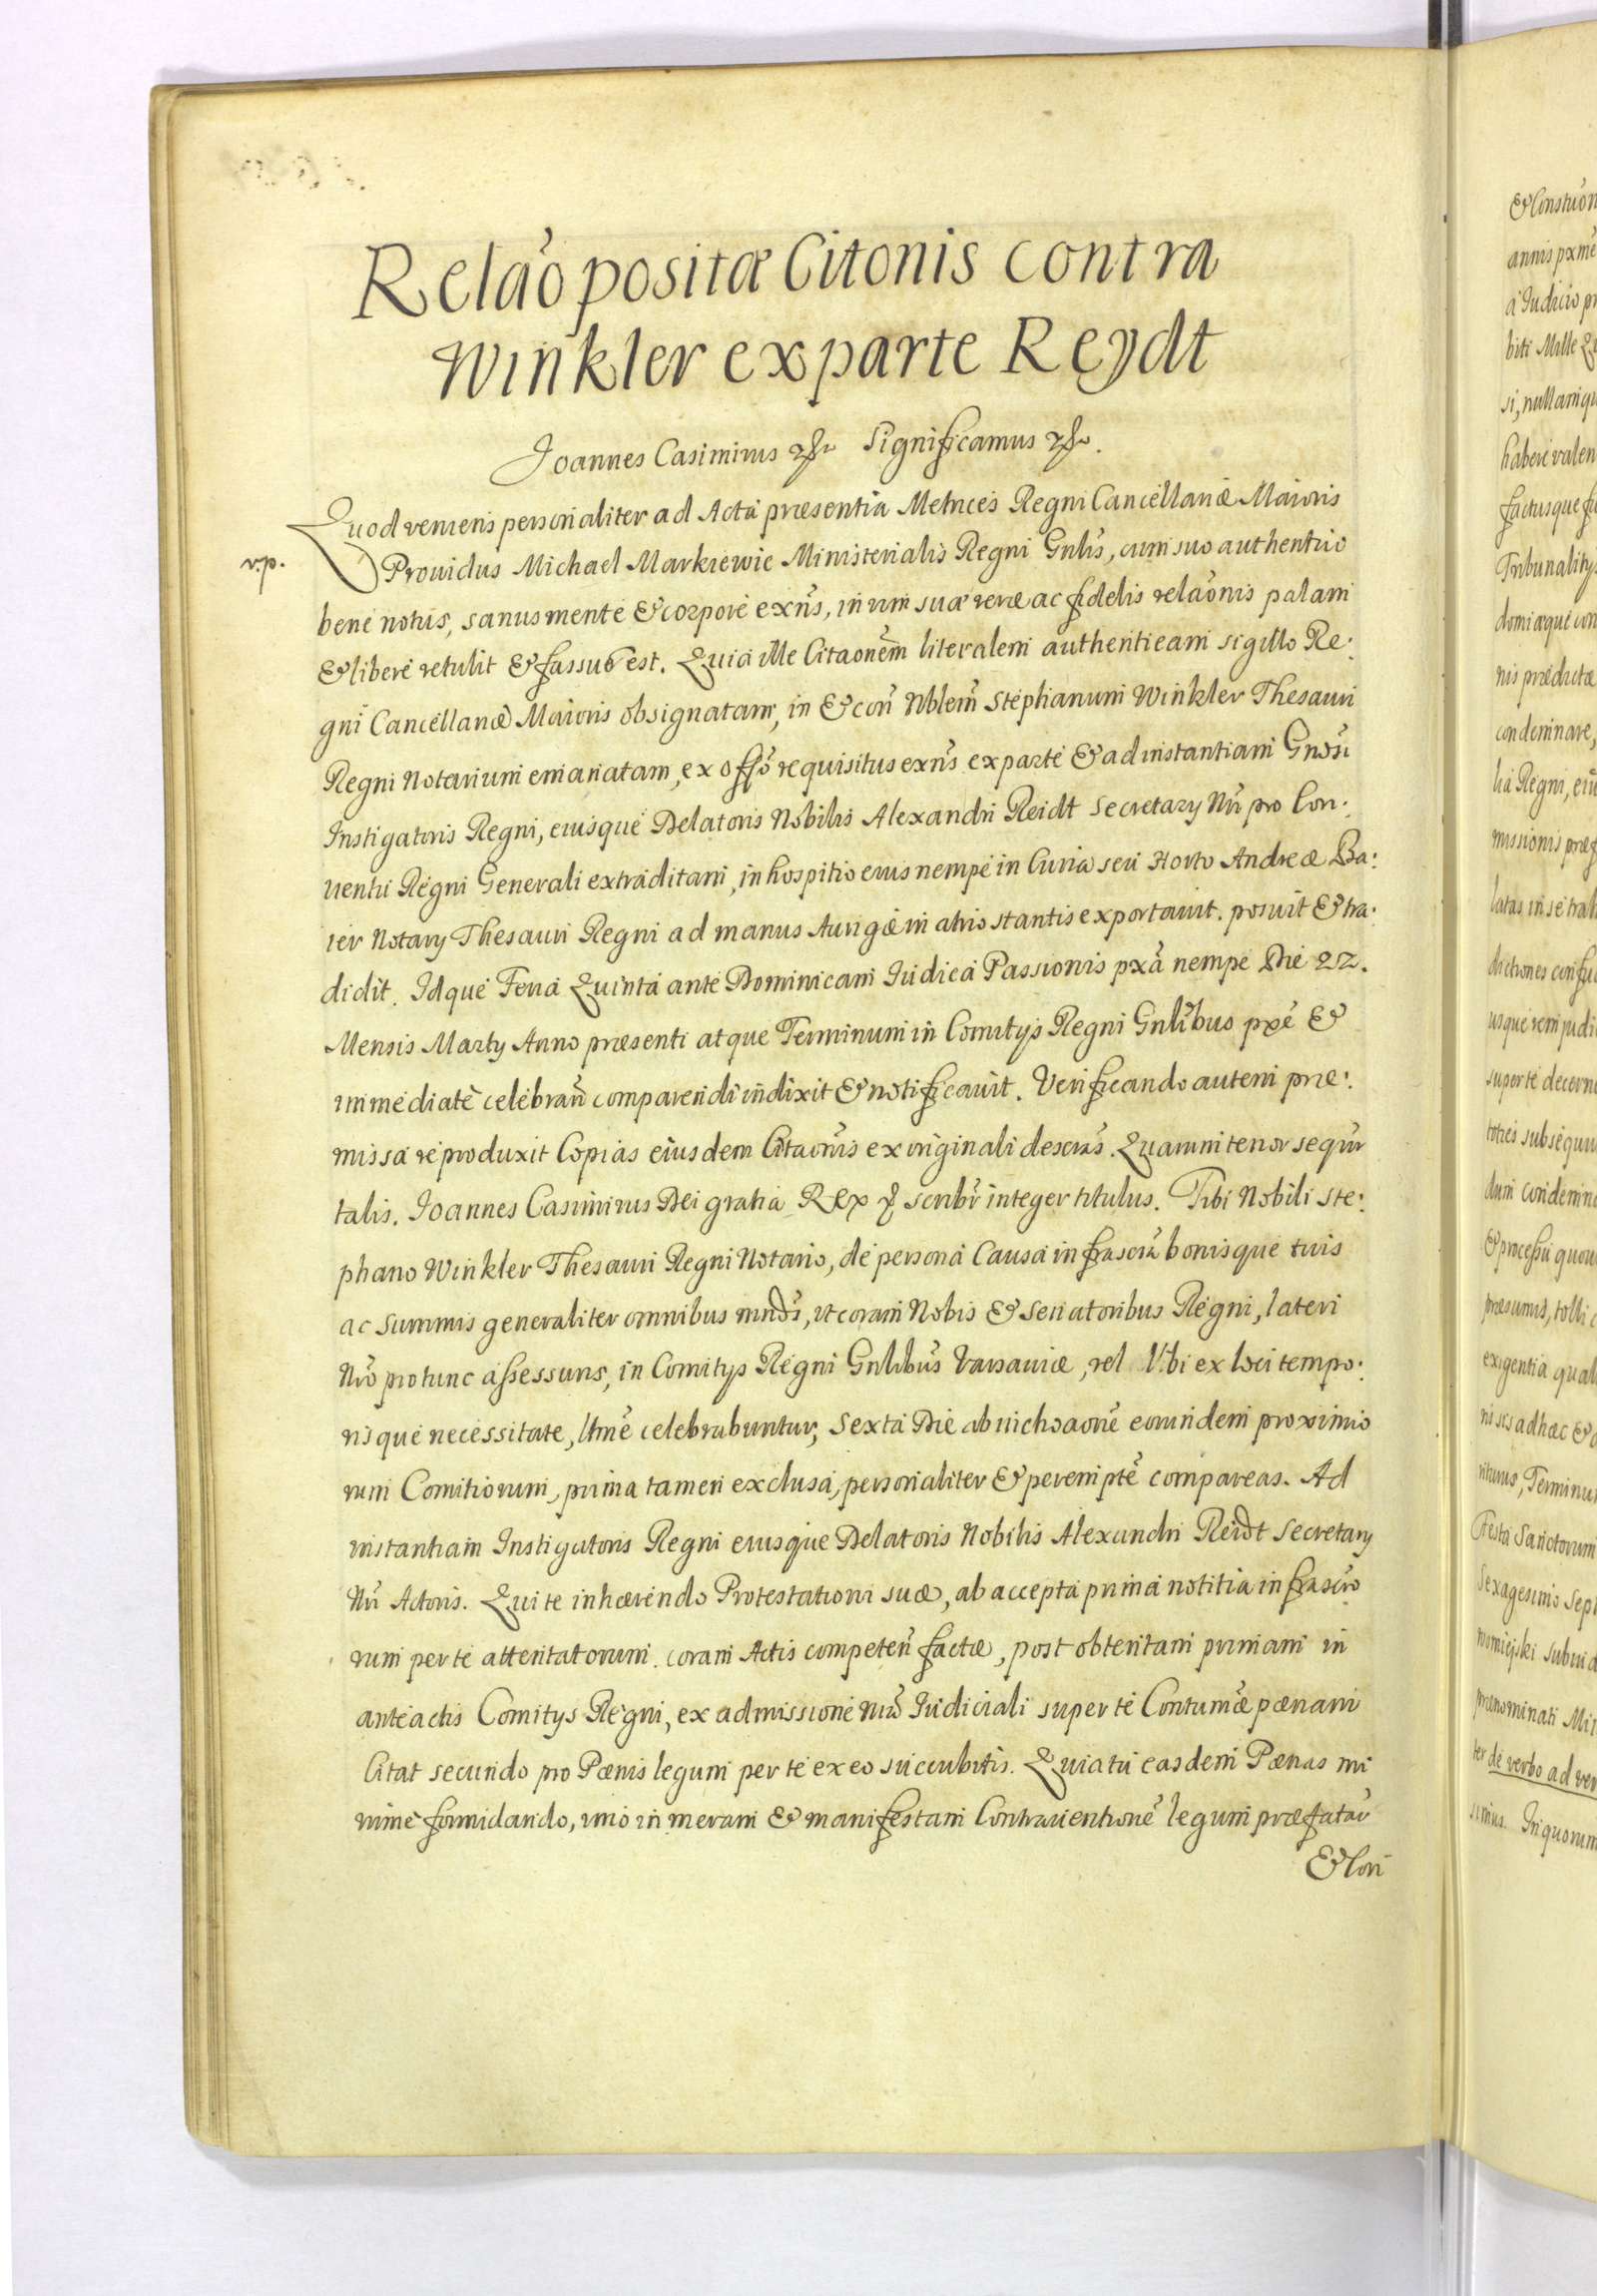 Relão positæ Citonis contra
Winkler ex parte Reydt
Joannes Casimirus Significamus
v.p.
Quod veniens personaliter ad Acta præsentia Metrices Regni Cancellariæ Maioris
Prouidus Michael Markiewic Ministerialis Regni Gnlis, cum suo authentico
bene notus, sanus mente & corpore exns, in vim suæ veræ ac fidelis relaonis palam
& libere retulit & fassus est. Quia ille Citaonem literalem authenticam sigillo Re:
gni Cancellariæ Maioris obsignatam, in & con Nblem Stephanum Winkler Thesauri
Regni Notarium emanatam, ex offo requisitus exns ex parte & ad instantiam Gnosi
Instigatoris Regni, eiusque Delatoris Nobilis Alexandri Reidt Secretary Nri pro Con:
uentu Regni Generali extraditam, in hospitio eius nempe in Curia seu Horto Andreæ Ba:
ier Notary Thesauri Regni ad manus Aurigæ in atrio stantis exportauit. posuit & tra:
didit. Idque Feria Quinta ante Dominicam Iudica Passionis pxa nempe Die 22.
Mensis Marty Anno præsenti atque Terminum in Comitys Regni Gnlibus pxe &
immediate celebran comparendi indixit & notificauit. Verificando autem præ:
missa reproduxit Copias eiusdem Citaonis ex originali descras. Quarum tenor sequr
talis. Joannes Casimirus Dei gratia Rex scribr integer titulus. Tibi Nobili Ste:
phano Winkler Thesauri Regni Notario, de persona Causa infrascra bonisque tuis
ac summis generaliter omnibus mndo, vt coram Nobis & Senatoribus Regni, lateri
Nro pro tunc assessuris, in Comitys Regni Gnlibus Varsauiæ, vel Vbi ex loci tempo:
risque necessitate, ltme celebrabuntur, Sexta Die ab inchoaone eorundem proximio
rum Comitiorum, prima tamen exclusa, personaliter & perempte compareas. Ad
instantiam Instigatoris Regni eiusque Delatoris Nobilis Alexandri Reidt Secretary
Nri Actoris. Qui te inhærendo Protestationi suæ, ab accepta prima notitia infrascro
rum per te attentatorum. coram Actis competen factæ, post obtentam primam in
anteactis Comitys Regni, ex admissione nra Iudiciali super te Contumæ pænam
Citat secundo pro Pænis legum per te ex eo succubitis. Quia tu easdem Pænas mi
nime formidando, imo in meram & manifestam Contrauentione legum præfatar
& Con